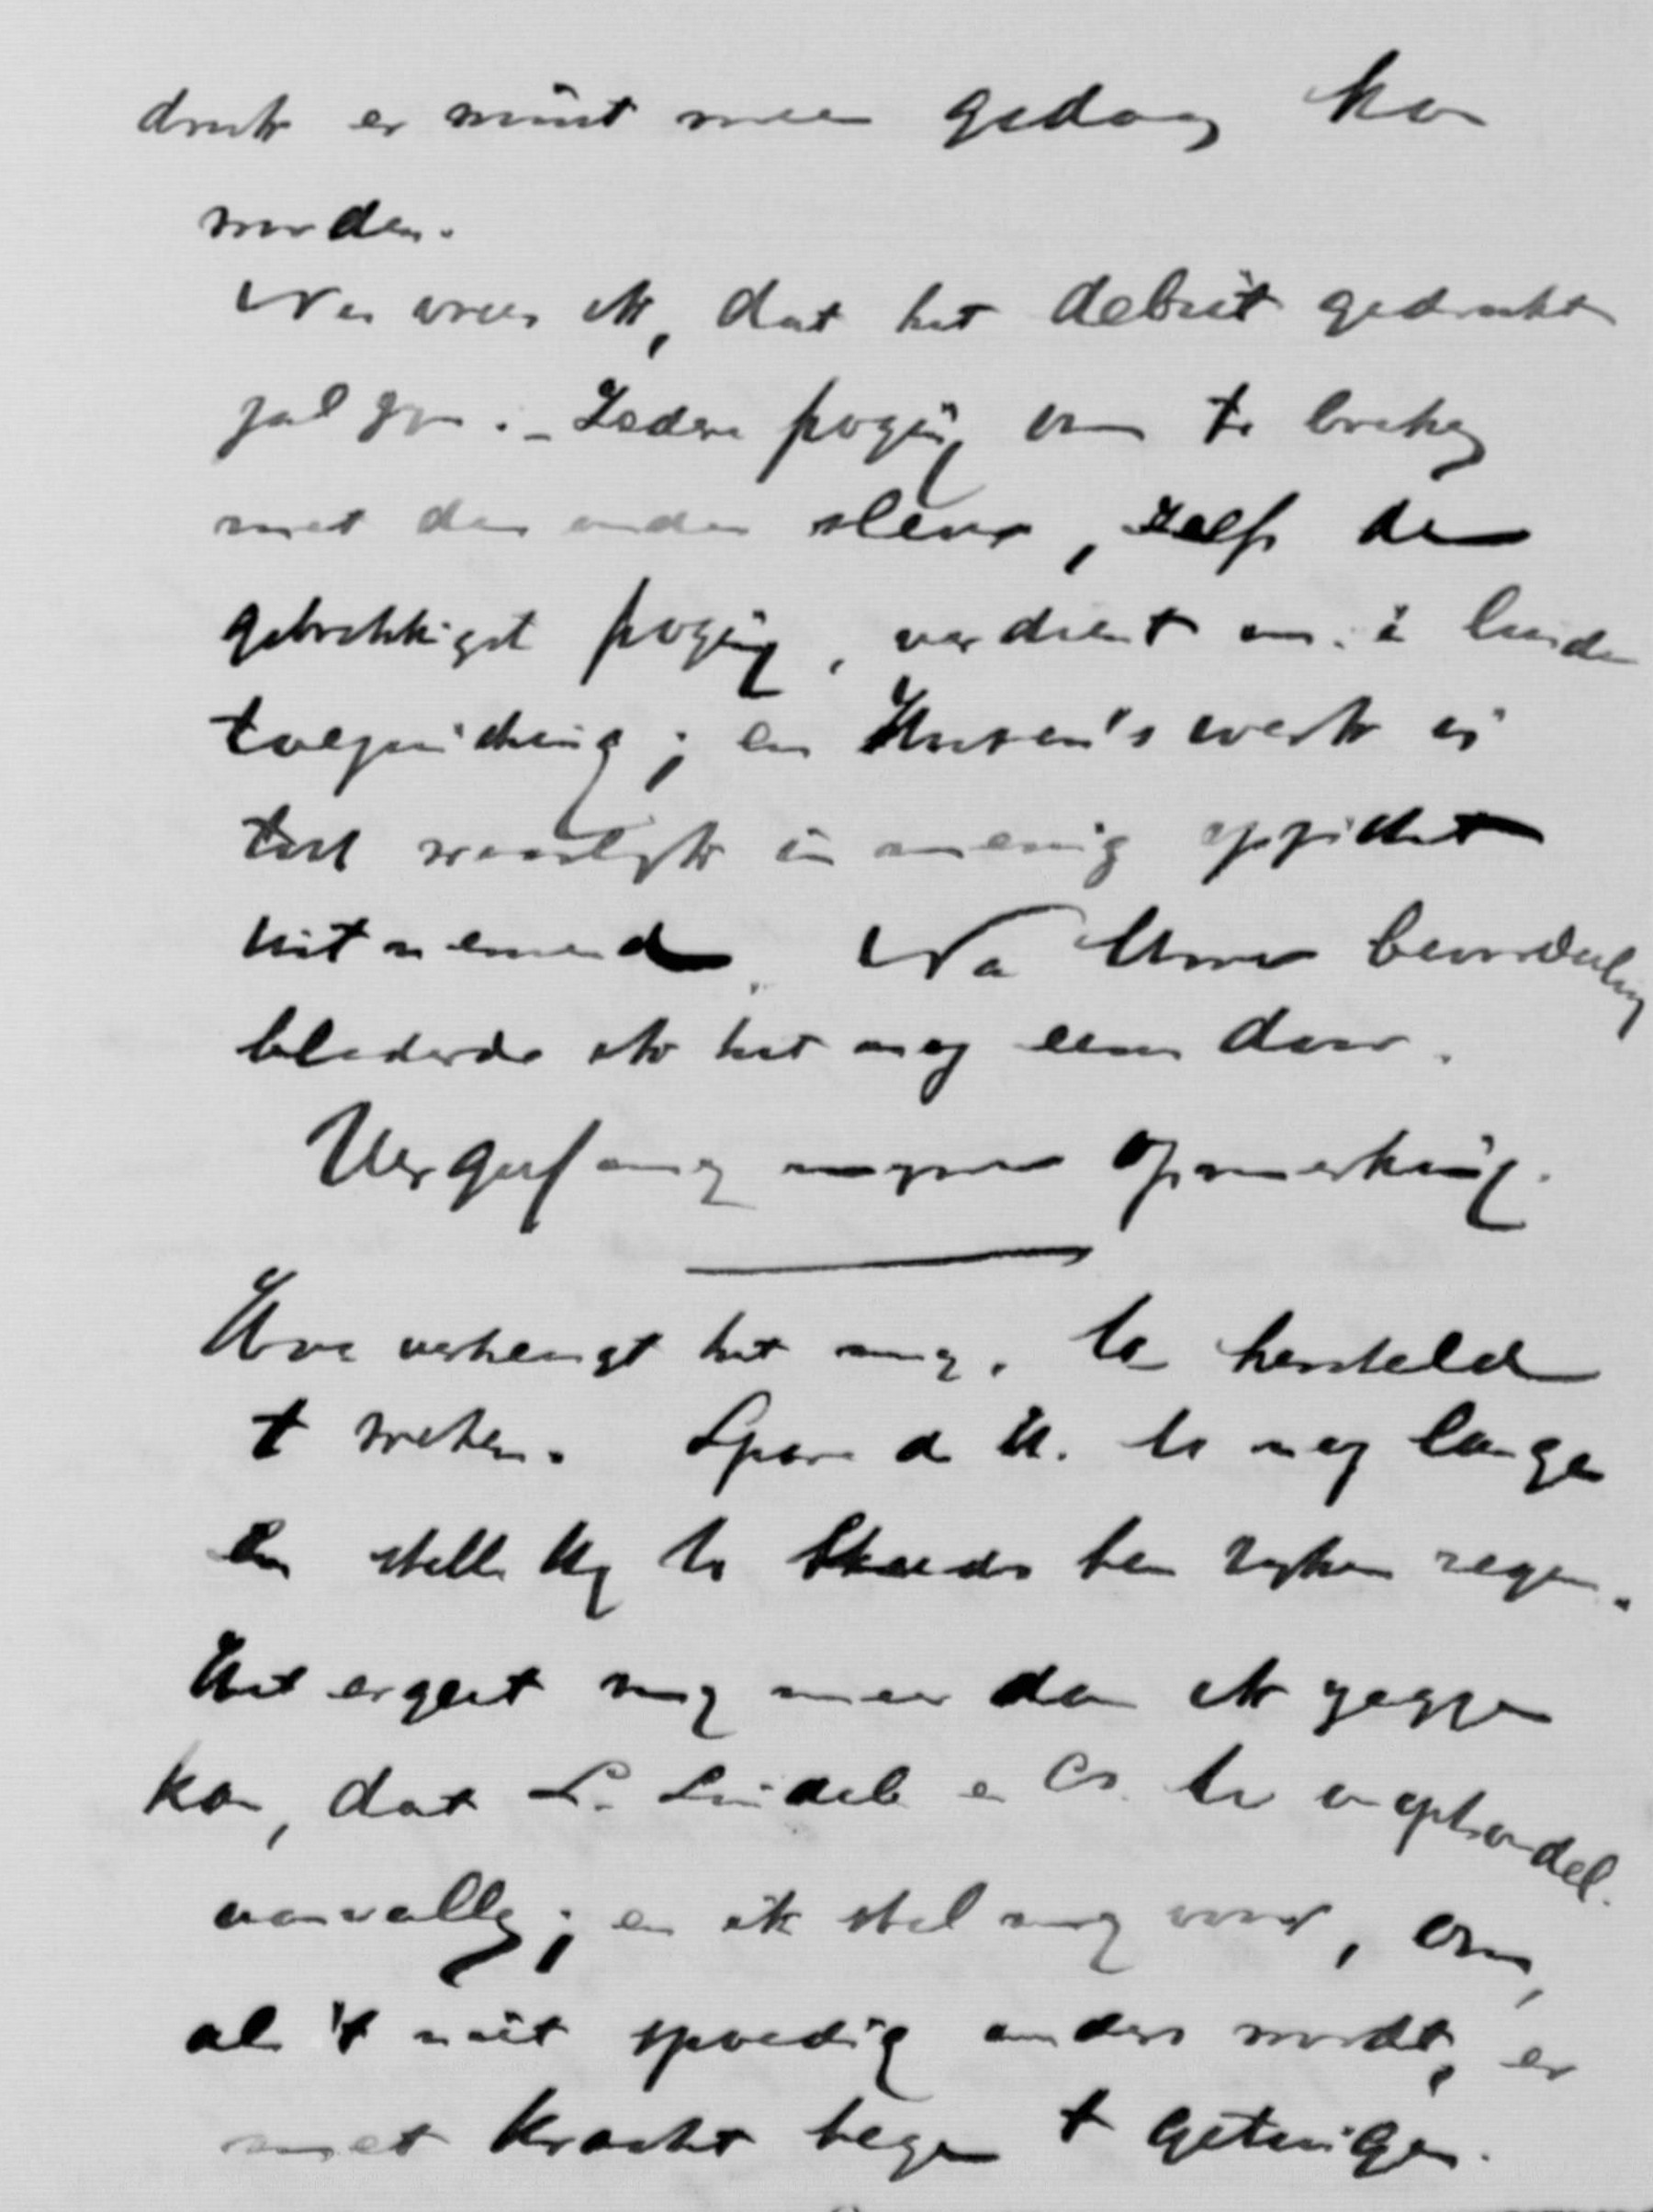 druk er niet meer gedaan kan
worden.
Nu vrees ik, dat het debiet gedrukt
zal zijn. – Iedere poging om te breken
met den ouden sleur, zelfs de
gebrekkigst poging, verdient m. i. luide
toejuiching; en Huren's werk is
toch waarlijk in menig opzicht
uitnemend. Na Uwe beoordeeling
bladerde ik het nog eens door.
Vergeef mij mijne opmerking.

Hoe verheugt het mij, U hersteld
te weten. Spare de H. U nog lange
en stelle Hij U steeds ten rijken zegen.
Het ergert mij meer dan ik zeggen
kan, dat L. Lindeb en Co. U
aanvallen; en ik stel mij voor, om,
als 't niet spoedig anders wordt, er
met kracht tegen te getuigen.